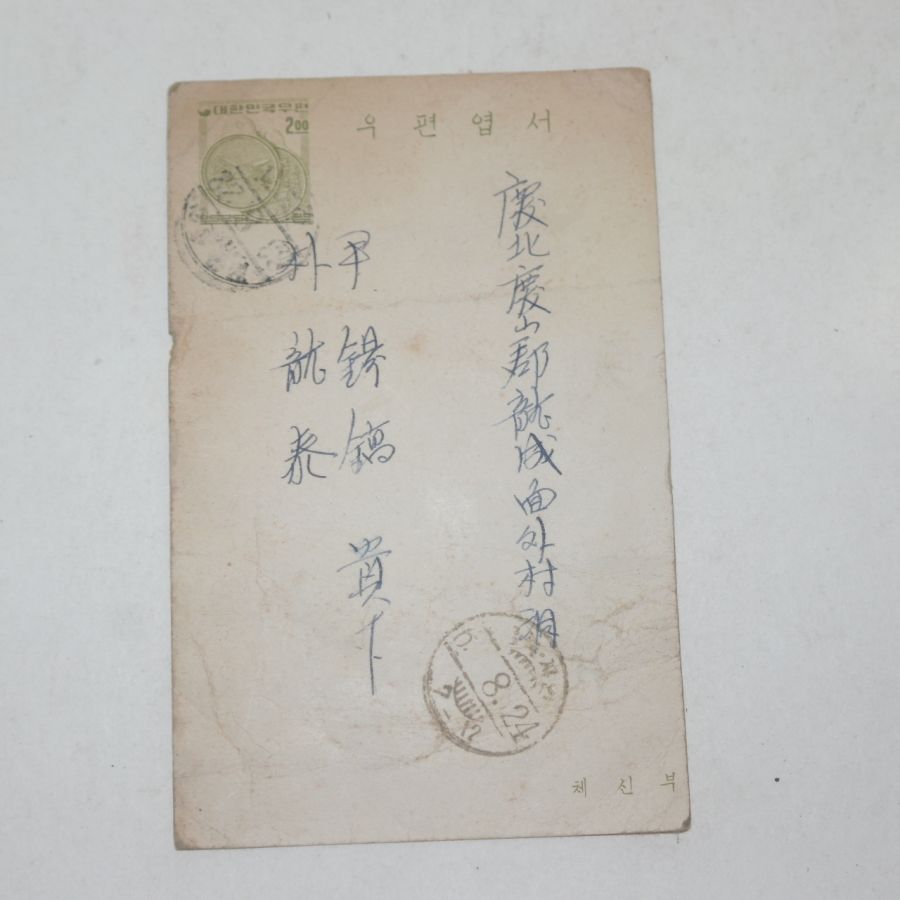 대한민국우편
2.00
우편엽서
慶北慶山郡龍成面外村洞
朴龍泰
貴下
8.24
체신부